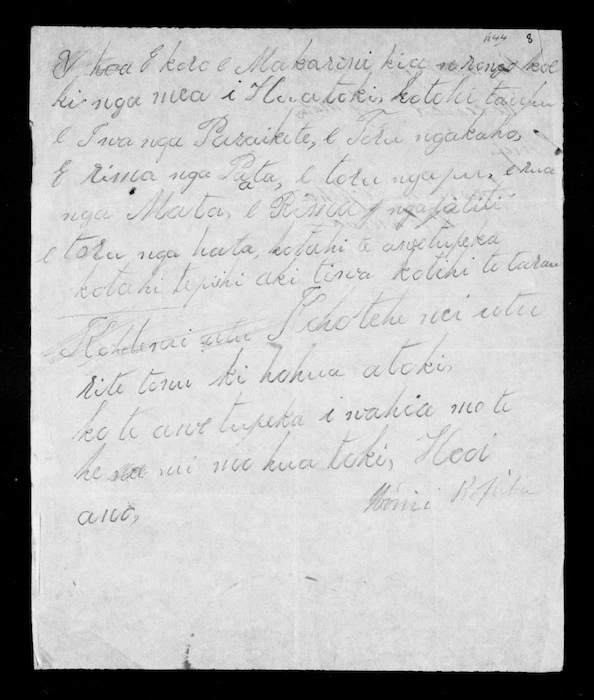 1144 8
E hoa E koro e Makarini kia rongo koe
ki nga mea i Huatoki, kotahi taupu
e Iwa nga Paraikite, e Toru ngakaho,
E rima nga Pata, e toru ngapu, e rua
nga Mata, e Rima ngapatiti
e toru nga hata, kotahi te awetupeka
kotahi tepihi aki tiwa kotihi te tarau
utu nei utu
rite tonu ki hohua atoki,
ko te awe tupeka i wahia mo te
he mi mo hua toki, Heoi
ano,